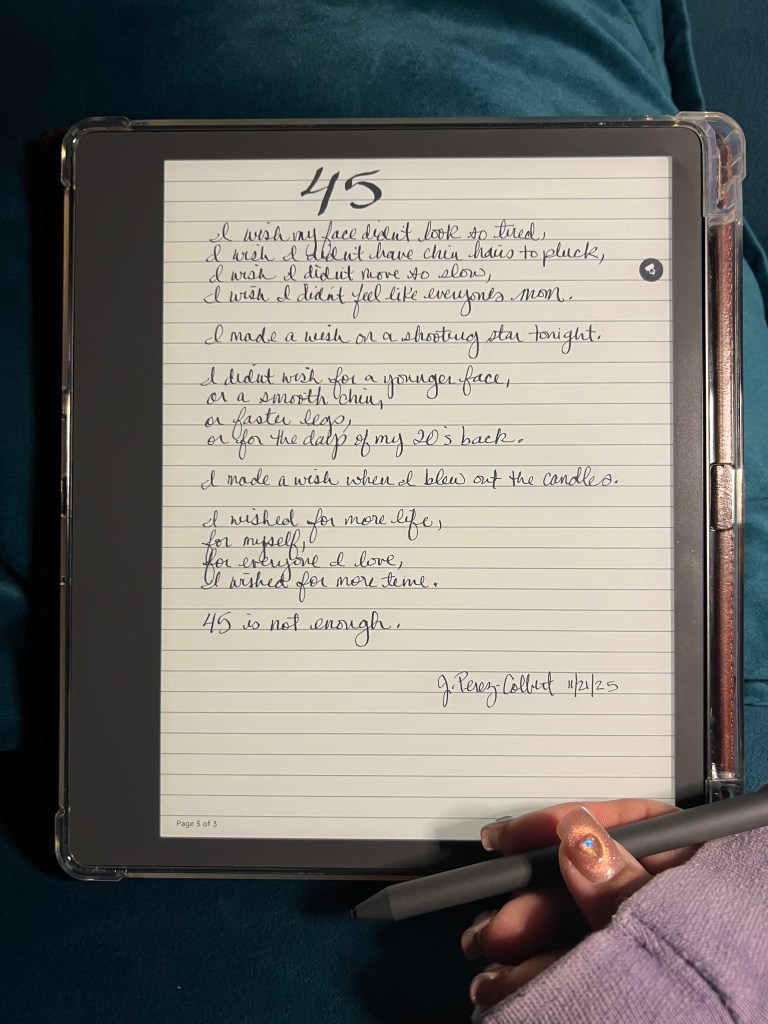 45
I wish my face didn't look so tired,
I wish I didn't have chin hairs to pluck,
I wish I didn't move so slow,
I wish I didn't feel like everyone's mom.
I made a wish on a shooting star tonight.
I didn't wish for a younger face,
or a smooth chin,
or faster legs,
or for the days of my 20's back.
I made a wish when I blew out the candles.
I wished for more life,
for myself,
for everyone I love,
I wished for more time.
45 is not enough.
J. Perez-Colbert 11/21/25
Page 3 of 3